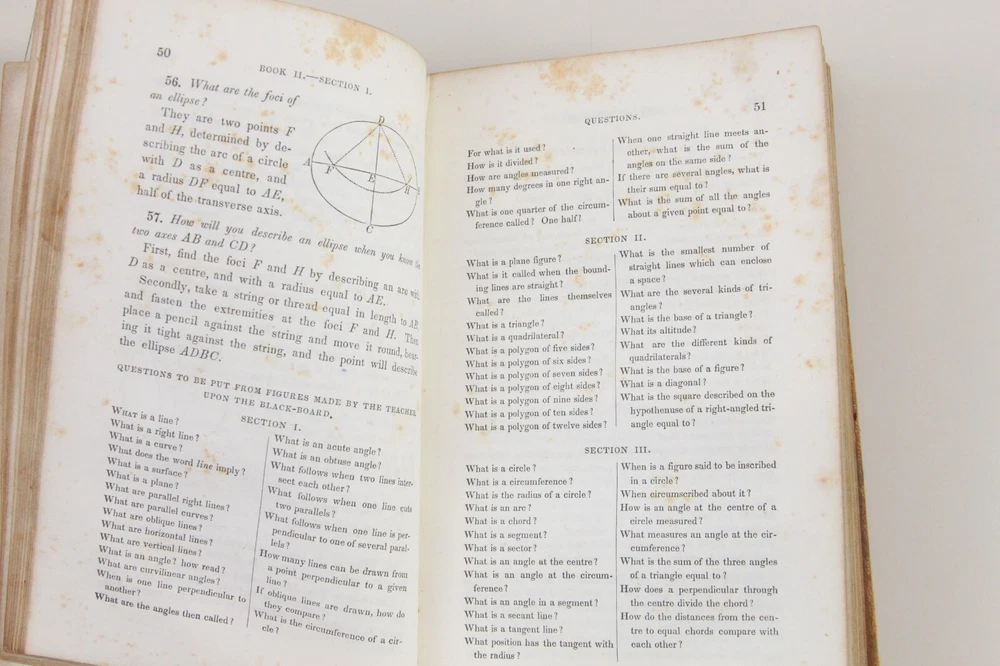 50
BOOK II.—SECTION I.
56. What are the foci of
an ellipse?
They are two points F
and H, determined by de-
scribing the arc of a circle
with D as a centre, and
a radius DF equal to AE,
half of the transverse axis.
D
A
F
E
H
B
C
57. How will you describe an ellipse when you know the
two axes AB and CD?
First, find the foci F and H by describing an arc with
D as a centre, and with a radius equal to AE.
Secondly, take a string or thread equal in length to AB
and fasten the extremities at the foci F and H. Then
place a pencil against the string and move it round, bear-
ing it tight against the string, and the point will describe
the ellipse ADBC.
QUESTIONS TO BE PUT FROM FIGURES MADE BY THE TEACHER
UPON THE BLACK-BOARD.
SECTION I.
WHAT is a line?
What is a right line?
What is a curve?
What does the word line imply?
What is a surface?
What is a plane?
What are parallel right lines?
What are parallel curves?
What are oblique lines?
What are horizontal lines?
What are vertical lines?
What is an angle? how read?
What are curvilinear angles?
When is one line perpendicular to
another?
What are the angles then called?
What is an acute angle?
What is an obtuse angle?
What follows when two lines inter-
sect each other?
What follows when one line cuts
two parallels?
What follows when one line is per-
pendicular to one of several paral-
lels?
How many lines can be drawn from
a point perpendicular to a given
line?
If oblique lines are drawn, how do
they compare?
What is the circumference of a cir-
cle?
QUESTIONS.
51
For what is it used?
How is it divided?
How are angles measured?
How many degrees in one right an-
gle?
What is one quarter of the circum-
ference called? One half?
When one straight line meets an-
other, what is the sum of the
angles on the same side?
If there are several angles, what is
their sum equal to?
What is the sum of all the angles
about a given point equal to?
SECTION II.
What is a plane figure?
What is it called when the bound-
ing lines are straight?
What are the lines themselves
called?
What is a triangle?
What is a quadrilateral?
What is a polygon of five sides?
What is a polygon of six sides?
What is a polygon of seven sides?
What is a polygon of eight sides?
What is a polygon of nine sides?
What is a polygon of ten sides?
What is a polygon of twelve sides?
What is the smallest number of
straight lines which can enclose
a space?
What are the several kinds of tri-
angles?
What is the base of a triangle?
What its altitude?
What are the different kinds of
quadrilaterals?
What is the base of a figure?
What is a diagonal?
What is the square described on the
hypothenuse of a right-angled tri-
angle equal to?
SECTION III.
What is a circle?
What is a circumference?
What is the radius of a circle?
What is an arc?
What is a chord?
What is a segment?
What is a sector?
What is an angle at the centre?
What is an angle at the circum-
ference?
What is an angle in a segment?
What is a secant line?
What is a tangent line?
What position has the tangent with
the radius?
When is a figure said to be inscribed
in a circle?
When circumscribed about it?
How is an angle at the centre of a
circle measured?
What measures an angle at the cir-
cumference?
What is the sum of the three angles
of a triangle equal to?
How does a perpendicular through
the centre divide the chord?
How do the distances from the cen-
tre to equal chords compare with
each other?